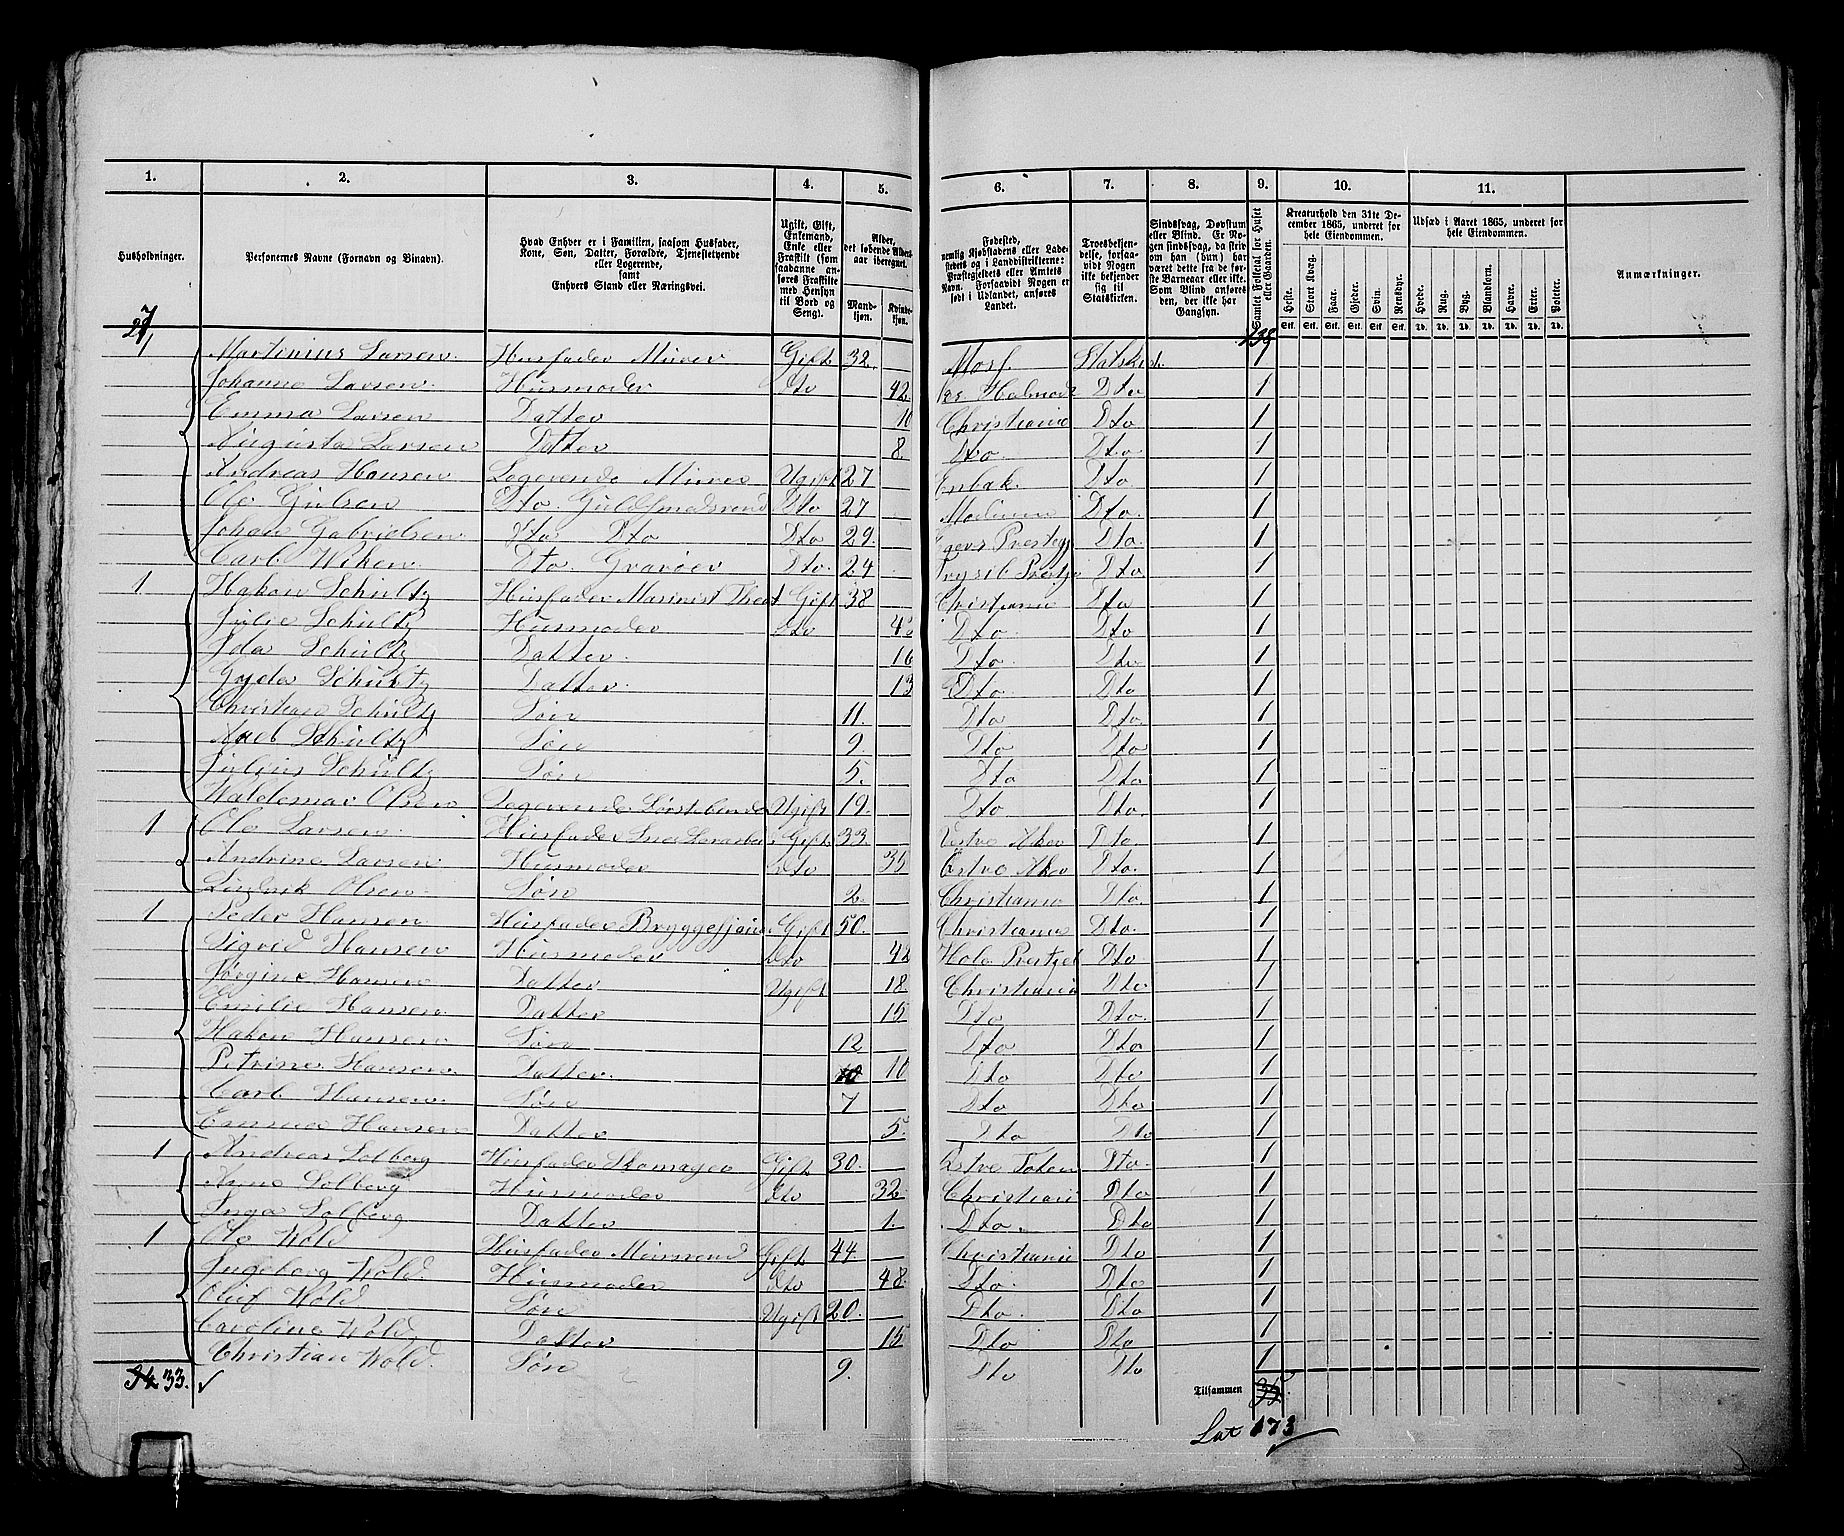 1. 2. 3. 4. 5. 6. 7. 8. 9. 10. 11.
Husholdninger.
Personernes Navne (Fornavn og Binavn).
Hvad Enhver er i Familien, saasom Husfader, Kone, Søn, Datter, Forældre, Tjenestetyende eller Logerende, samt Enhvers Stand eller Næringsvei.
Ugift, Gift, Enkemand, Enke eller Fraskilt (som saadanne anføres Fraskilte med Hensyn til Bord og Seng).
Alder, det løbende Alders-aar iberegnet.
Mand-kjøn. Kvinde-kjøn.
Fødested, nemlig Kjøbstadens eller Ladestedets og i Landdistrikterne: Præstegjeldets eller Amtets Navn. Forsaavidt Nogen er født i Udlandet, anføres Landet.
Troesbekjendelse, forsaavidt Nogen ikke bekjender sig til Statskirken.
Sindssvag, Døvstum eller Blind. Er Nogen sindssvag, da skrives om han (hun) har været dette fra de første Barneaar eller ikke. Som Blind anføres den, der ikke har Gangsyn.
Samlet Folketal for Huset eller Gaarden.
Kreaturhold den 31te December 1865, underet for hele Eiendommen.
Heste. Stort Kvæg. Faar. Gjeder. Svin. Rensdyr.
Stk. Stk. Stk. Stk. Stk. Stk.
Udsæd i Aaret 1865, underet for hele Eiendommen.
Hvede. Rug. Byg. Blandkorn. Havre. Erter. Poteter.
Td. Td. Td. Td. Td. Td. Td.
Anmærkninger.
27 138
1 Martinius Larsen. Husfader Murer Gift 32. Moss Statskirk. 1
Johanne Larsen. Husmoder Dto 42. Dto 1
Emma Larsen Datter 10 Christiania Dto 1
Augusta Larsen Datter 8. Dto. Dto. 1
Andreas Hansen Logerende Murer Ugift 27 Enbak. Dto. 1
Ole Dto Dto 27 Modum Dto. 1
Johan Gabrielsen Dto Dto Dto 29. Egers Presteg Dto. 1
Carl Wiken. Dto. Gravør Dto. 24 Trysil Prestgj Dto. 1
1 Hakon Schultz Husfader Marinist Theat Gift 38 Christiania Dto 1
Julie Schultz Husmoder Dto Dto. Dto 1
Ida Schultz Datter. 16 Dto. Dto. 1
Gyda Schultz Datter. 13 Dto. Dto 1
Christian Schultz Søn 11. Dto Dto. 1
Axel Schultz Søn 9. Dto Dto. 1
Julius Schultz Søn 5. Dto Dto. 1
Waldemar Olsen Logerende Børstebinder Ugift 19. Dto Dto. 1
1 Ole Larsen. Husfader Gift 33. Vestre Aker Dto. 1
Andrine Larsen. Husmoder Dto 35 Østre Aker Dto. 1
Ludvik Olsen. Søn 2. Christiania Dto. 1
1 Peder Hansen. Husfader Bryggesjou Gift 50. Christiania Dto. 1
Sigrid Hansen Husmoder Dto 42 Hole Prestgel Dto 1
Jørgine Hansen Datter Ugift 18 Christiania Dto. 1
Emilie Hansen Datter 15 Dto Dto. 1
Hakon Hansen. Søn 12 Dto Dto 1
Petrine Hansen. Datter. 10 Dto Dto 1
Carl Hansen. Søn 7 Dto Dto. 1
Emma Hansen Datter 5. Dto Dto 1
1 Andreas Solberg Husfader Skomager Gift 30. Østre Toten Dto. 1
Anne Solberg Husmoder Dto 32. Christiania Dto 1
Inga Solberg Datter 1. Dto. Dto 1
1 Ole Wold Husfader Gift 44 Christiania Dto 1
Ingeborg Wold. Husmoder Dto 48. Dto. Dto. 1
Oluf Wold Søn Ugift 20. Dto. Dto 1
Caroline Wold Datter 15 Dto Dto 1
Christian Wold. Søn 9. Dto Dto 1
34 33. Tilsammen 35.
Lat 173